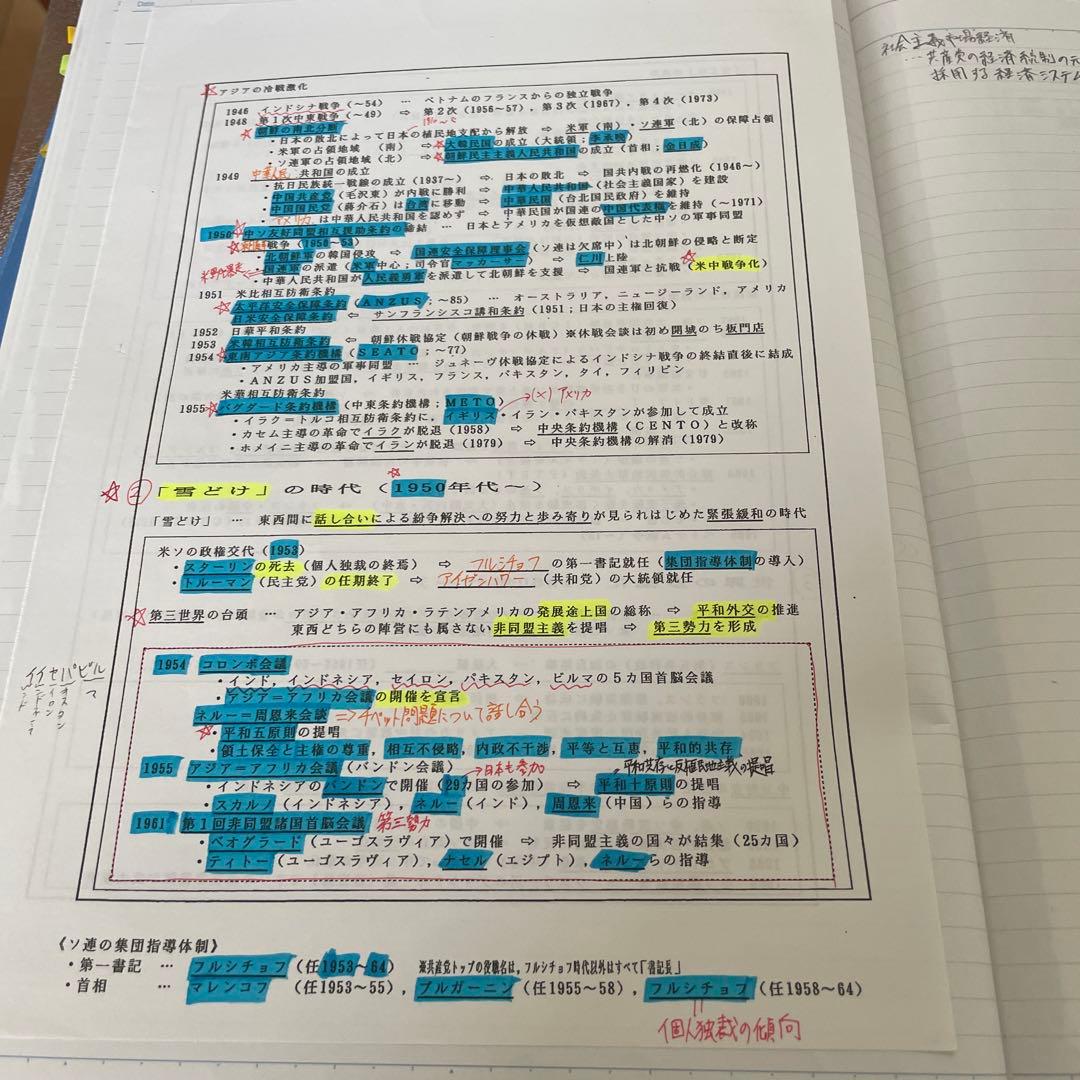 社会主義市場経済
…共産党の経済統制の元
採用する経済システム
☆アジアの冷戦激化
1946 インドシナ戦争(~54) … ベトナムのフランスからの独立戦争
1948 第1次中東戦争(~49) ⇨ 第2次(1956~57), 第3次(1967), 第4次(1973)
☆朝鮮の南北分断
・日本の敗北によって日本の植民地支配から解放 ⇨ 米軍(南)・ソ連軍(北)の保障占領
・米軍の占領地域 (南) ⇨ ☆大韓民国の成立(大統領;李承晩)
・ソ連軍の占領地域(北) ⇨ ☆朝鮮民主主義人民共和国の成立(首相;金日成)
1949 中華人民共和国の成立
・抗日民族統一戦線の成立(1937~) ⇨ 日本の敗北 ⇨ 国共内戦の再燃化(1946~)
・中国共産党(毛沢東)が内戦に勝利 ⇨ 中華人民共和国(社会主義国家)を建設
・中国国民党(蔣介石)は台湾に移動 ⇨ 中華民国(台北国民政府)を維持
・アメリカは中華人民共和国を認めず ⇨ 中華民国が国連の中国代表権を維持(~1971)
1950 ☆中ソ友好同盟相互援助条約の締結 … 日本とアメリカを仮想敵国とした中ソの軍事同盟
☆朝鮮戦争(1950~53)
・北朝鮮軍の韓国侵攻 ⇨ 国連安全保障理事会(ソ連は欠席中)は北朝鮮の侵略と断定
・国連軍の派遣(米軍中心;司令官マッカーサー) ⇨ 仁川上陸
・中華人民共和国が人民義勇軍を派遣して北朝鮮を支援 ⇨ 国連軍と抗戦(☆米中戦争化)
1951 米比相互防衛条約
☆太平洋安全保障条約(ANZUS;~85) … オーストラリア, ニュージーランド, アメリカ
日米安全保障条約 ⇦ サンフランシスコ講和条約(1951;日本の主権回復)
1952 日華平和条約
1953 米韓相互防衛条約 ⇦ 朝鮮休戦協定(朝鮮戦争の休戦)※休戦会談は初め開城のち板門店
1954 ☆東南アジア条約機構(SEATO;~77)
・アメリカ主導の軍事同盟 … ジュネーヴ休戦協定によるインドシナ戦争の終結直後に結成
・ANZUS加盟国, イギリス, フランス, パキスタン, タイ, フィリピン
米華相互防衛条約
→(×)アメリカ
1955 ☆バグダード条約機構(中東条約機構;METO)
・イラク=トルコ相互防衛条約に, イギリス・イラン・パキスタンが参加して成立
・カセム主導の革命でイラクが脱退(1958) ⇨ 中央条約機構(CENTO)と改称
・ホメイニ主導の革命でイランが脱退(1979) ⇨ 中央条約機構の解消(1979)
☆②「雪どけ」の時代(☆1950年代~)
「雪どけ」 … 東西間に話し合いによる紛争解決への努力と歩み寄りが見られはじめた緊張緩和の時代
米ソの政権交代(1953)
・スターリンの死去(個人独裁の終焉) ⇨ フルシチョフの第一書記就任(集団指導体制の導入)
・トルーマン(民主党)の任期終了 ⇨ アイゼンハワー(共和党)の大統領就任
☆第三世界の台頭 … アジア・アフリカ・ラテンアメリカの発展途上国の総称 ⇨ 平和外交の推進
東西どちらの陣営にも属さない非同盟主義を提唱 ⇨ 第三勢力を形成
イイセパビルで
ンド
ンドネシア
イロン
キスタン
1954 コロンボ会議
・インド, インドネシア, セイロン, パキスタン, ビルマの5カ国首脳会議
・アジア=アフリカ会議の開催を宣言
ネルー=周恩来会談 ⇒チベット問題について話し合う
☆・平和五原則の提唱
・領土保全と主権の尊重, 相互不侵略, 内政不干渉, 平等と互恵, 平和的共存
1955 アジア=アフリカ会議(バンドン会議) →日本も参加 平和共存・反植民地主義の提唱
・インドネシアのバンドンで開催(29カ国の参加) ⇨ 平和十原則の提唱
・スカルノ(インドネシア), ネルー(インド), 周恩来(中国)らの指導
1961 第1回非同盟諸国首脳会議 第三勢力
・ベオグラード(ユーゴスラヴィア)で開催 ⇨ 非同盟主義の国々が結集(25カ国)
・ティトー(ユーゴスラヴィア), ナセル(エジプト), ネルーらの指導
《ソ連の集団指導体制》
・第一書記 … フルシチョフ(任1953~64) ※共産党トップの役職名は, フルシチョフ時代以外はすべて「書記長」
・首相 … マレンコフ(任1953~55), ブルガーニン(任1955~58), フルシチョフ(任1958~64)
個人独裁の傾向